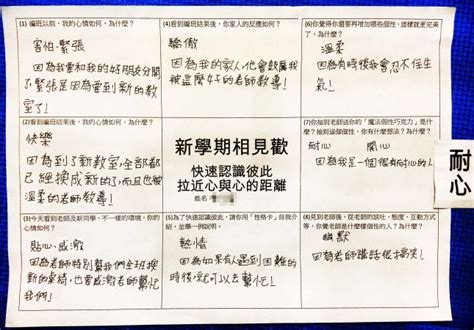 (1) 編班以前，我的心情如何，為什麼？
害怕、緊張
因為我會和我的好朋友分開
了，緊張是因為要到新的教
室了！
(4)看到編班結果後，你家人的反應如何？
驕傲
因為我的家人，他會說我
被這麼好的老師教導！
(6)你覺得你還要再增加哪些個性，這樣就更完美
了，為什麼？
溫柔
因為有時後我會忍不住生
氣！
(2)看到編班結果後，我的心情如何，為什麼？
快樂
因為到了新教室，全部都
已經換成新的，而且也被
溫柔的老師教導！
新學期相見歡
快速認識彼此
拉近心與心的距離
姓名
(7)你抽到老師送你的「魔法個性巧克力」是什
麼？抽到這個個性，你有什麼想法？為什麼？
耐心 開心
因為我是一個很有耐心的人
耐心
(3)今天看到老師及新同學、不一樣的環境，你的
心情如何？
貼心、感激
因為老師特別幫我們全班換
新的桌椅，也要感激老師幫忙
我們！
(5)為了快速認識彼此，請你用「性格卡」自我介
紹，並舉一個說明。
熱情
因為如果有人遇到困難的
時後，就可以去幫忙！
(8)見到老師後，從老師的談吐、態度、互動方式
等，你覺得老師是什麼樣個性的人？為什麼？
幽默
因為老師講話很搞笑！